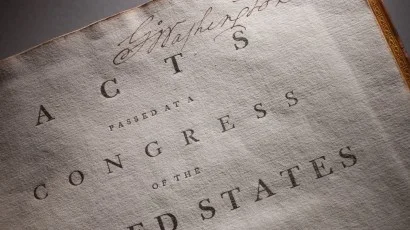 Go: Washington
ACTS
PASSED AT A
CONGRESS
OF THE
ED STATES